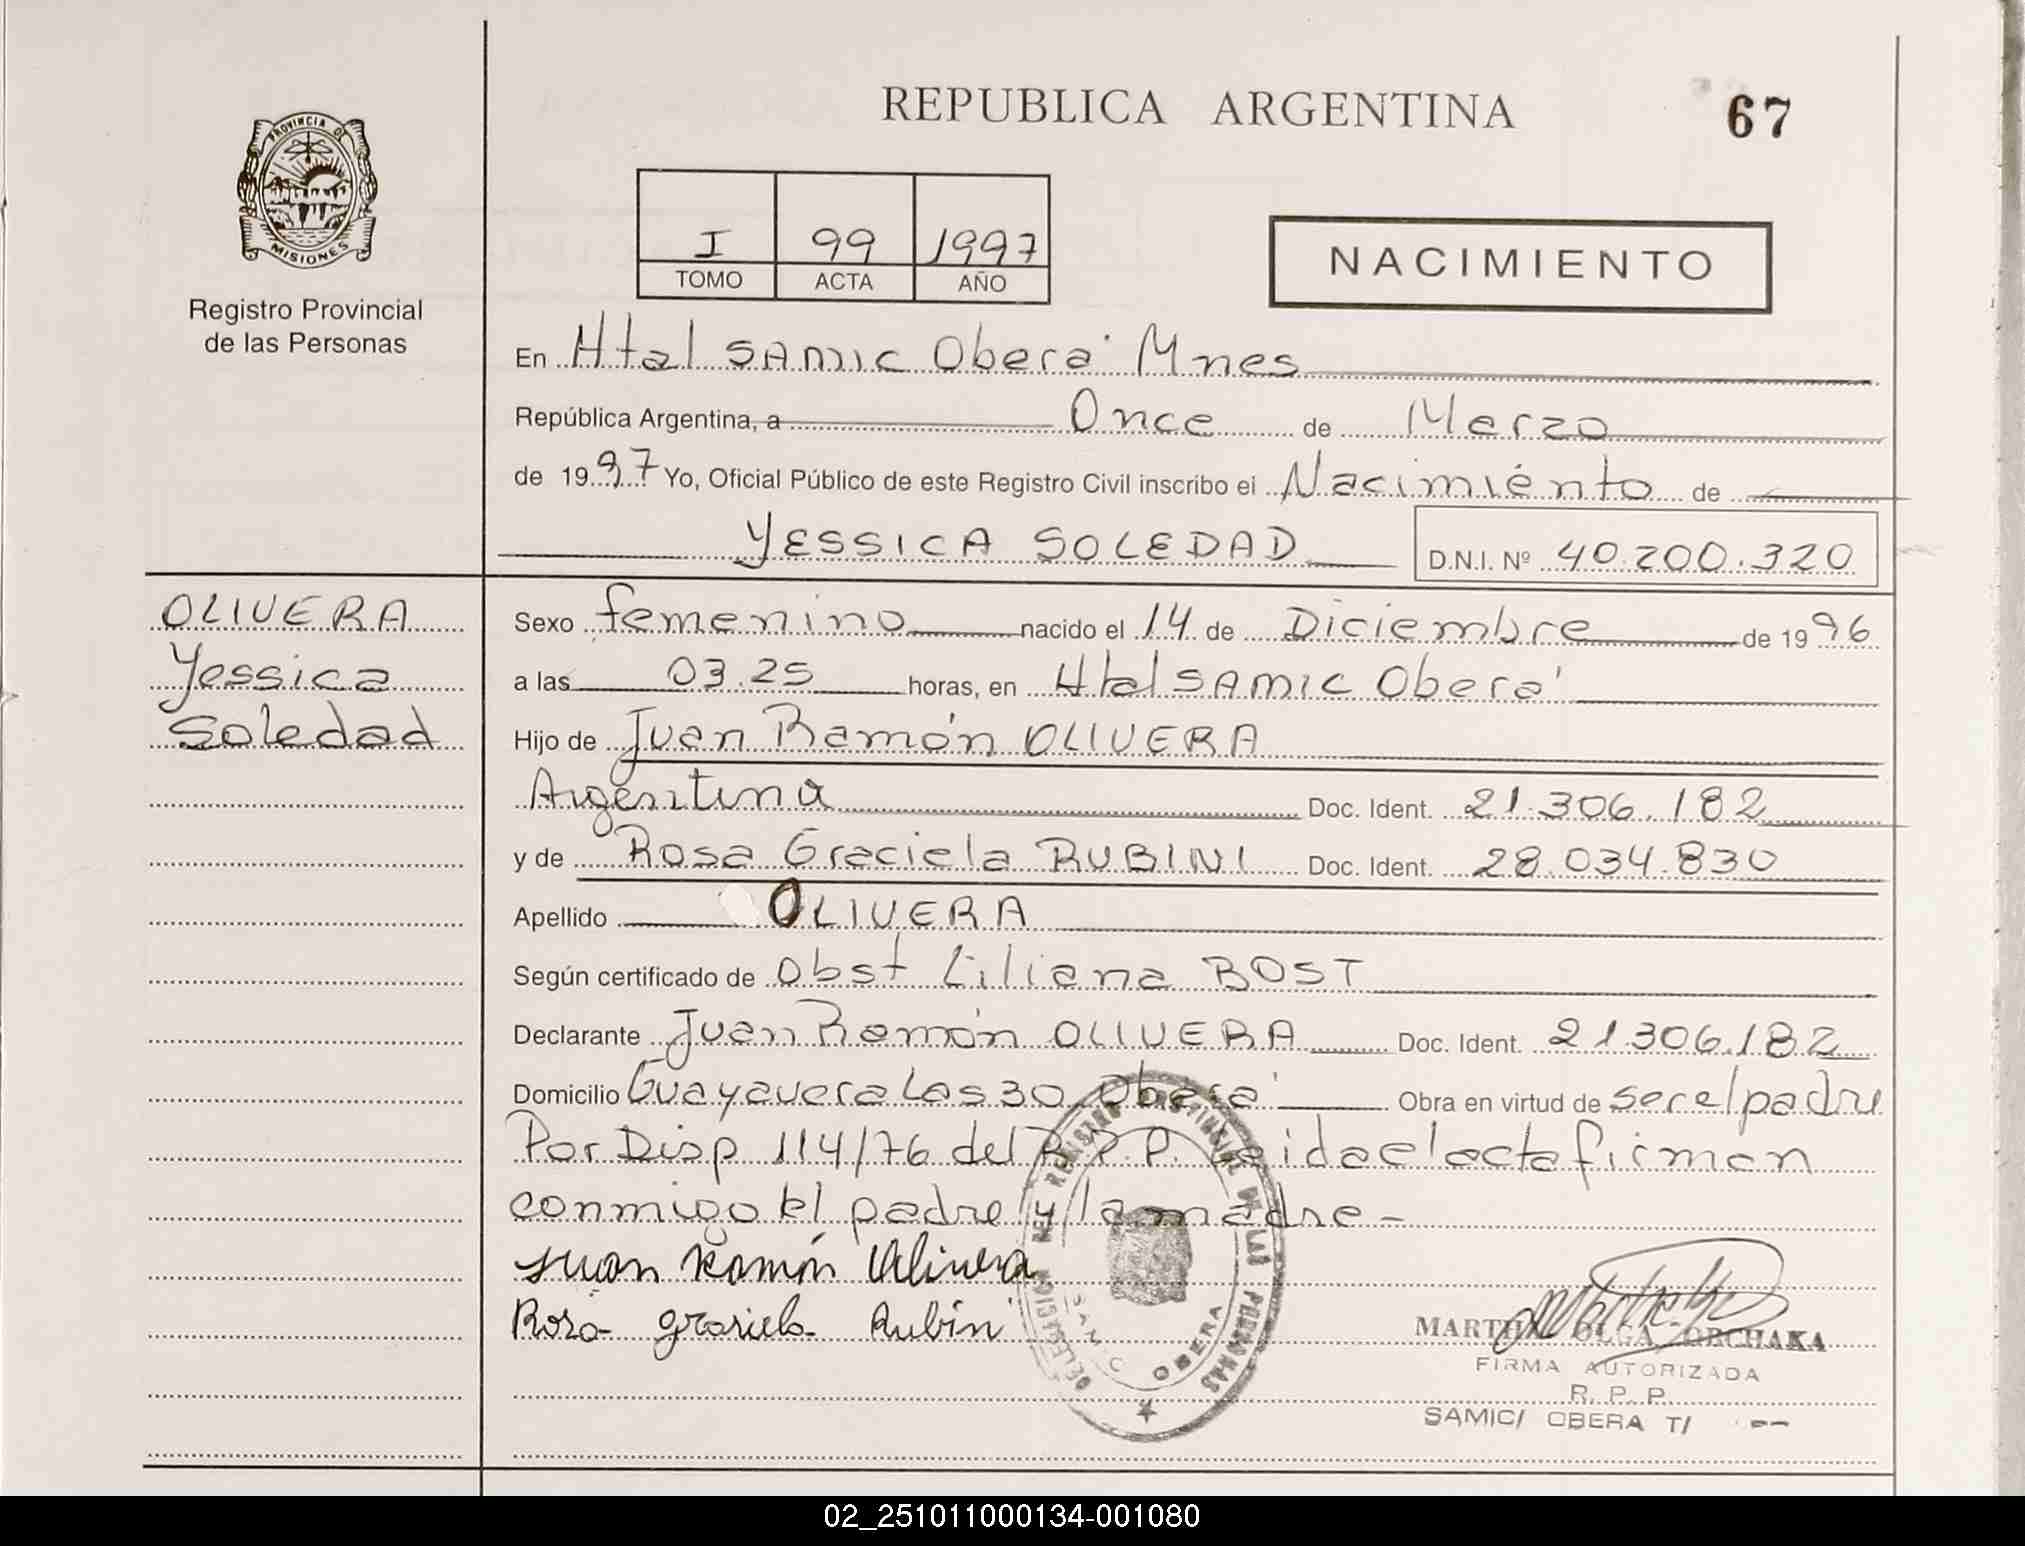 REPUBLICA ARGENTINA
67
PROVINCIA DE
MISIONES
Registro Provincial
de las Personas
I 99 1997
TOMO ACTA AÑO
NACIMIENTO
En Htal SAMIC Oberá Mnes
República Argentina, a Once de Marzo
de 1997 Yo, Oficial Público de este Registro Civil inscribo el Nacimiento de
YESSICA SOLEDAD D.N.I. Nº 40.200.320
OLIVERA
Yessica
Soledad
Sexo femenino nacido el 14 de Diciembre de 1996
a las 03.25 horas, en Htal SAMIC Oberá
Hijo de Juan Ramón OLIVERA
Argentina Doc. Ident. 21.306.182
y de Rosa Graciela RUBINI Doc. Ident. 28.034.830
Apellido OLIVERA
Según certificado de Obst Liliana BOST
Declarante Juan Ramón OLIVERA Doc. Ident. 21.306.182
Domicilio Guayavera Las 30 Oberá Obra en virtud de ser el padre
Por Disp 114/76 del R.P.P. Leida el acta firman
conmigo el padre y la madre -
Juan Ramón Olivera
Rosa graciela Rubin
DELEGACION DEL REGISTRO PROVINCIAL DE LAS PERSONAS
SAMIC OBERA
MARTHA OLGA ORCHAKA
FIRMA AUTORIZADA
R. P. P.
SAMIC/ OBERA T/
02_251011000134-001080